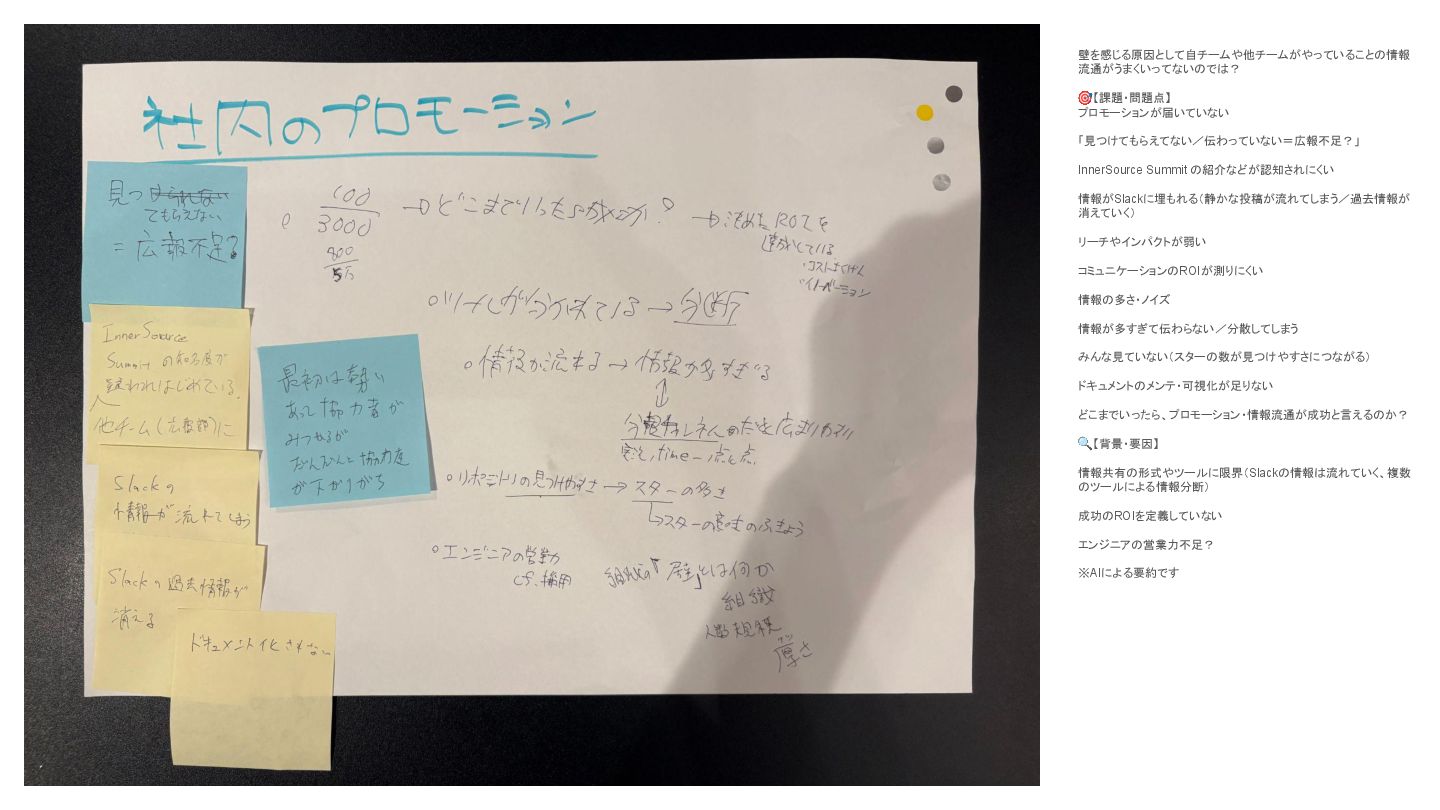 社内のプロモーション
見つ
てもらえない
= 広報不足?
100
3000
→ どこまでいったら成功か?
決めたROIを
達成している
・イノベーション
ツールが分かれている → 分断
InnerSource
Summit の知名度が
疑われはじめている。
他チーム(広報部)に
最初は勢い
あって協力者が
みつかるが
だんだんと協力度
が下がりがち
情報が流れる → 情報が多すぎる
リポジトリの見つけやすさ → スターの多さ
Slackの
情報が流れてしまう
エンジニアの営業力
cf. 採用
組織の「壁」とは何か
組織
人数規模
厚さ
Slackの過去情報が
消える
ドキュメント化されない
壁を感じる原因として自チームや他チームがやっていることの情報
流通がうまくいってないのでは？
🎯【課題・問題点】
プロモーションが届いていない
「見つけてもらえてない／伝わっていない＝広報不足？」
InnerSource Summit の紹介などが認知されにくい
情報がSlackに埋もれる（静かな投稿が流れてしまう／過去情報が
消えていく）
リーチやインパクトが弱い
コミュニケーションのROIが測りにくい
情報の多さ・ノイズ
情報が多すぎて伝わらない／分散してしまう
みんな見ていない（スターの数が見つけやすさにつながる）
ドキュメントのメンテ・可視化が足りない
どこまでいったら、プロモーション・情報流通が成功と言えるのか？
🔍【背景・要因】
情報共有の形式やツールに限界（Slackの情報は流れていく、複数
のツールによる情報分断）
成功のROIを定義していない
エンジニアの営業力不足？
※AIによる要約です